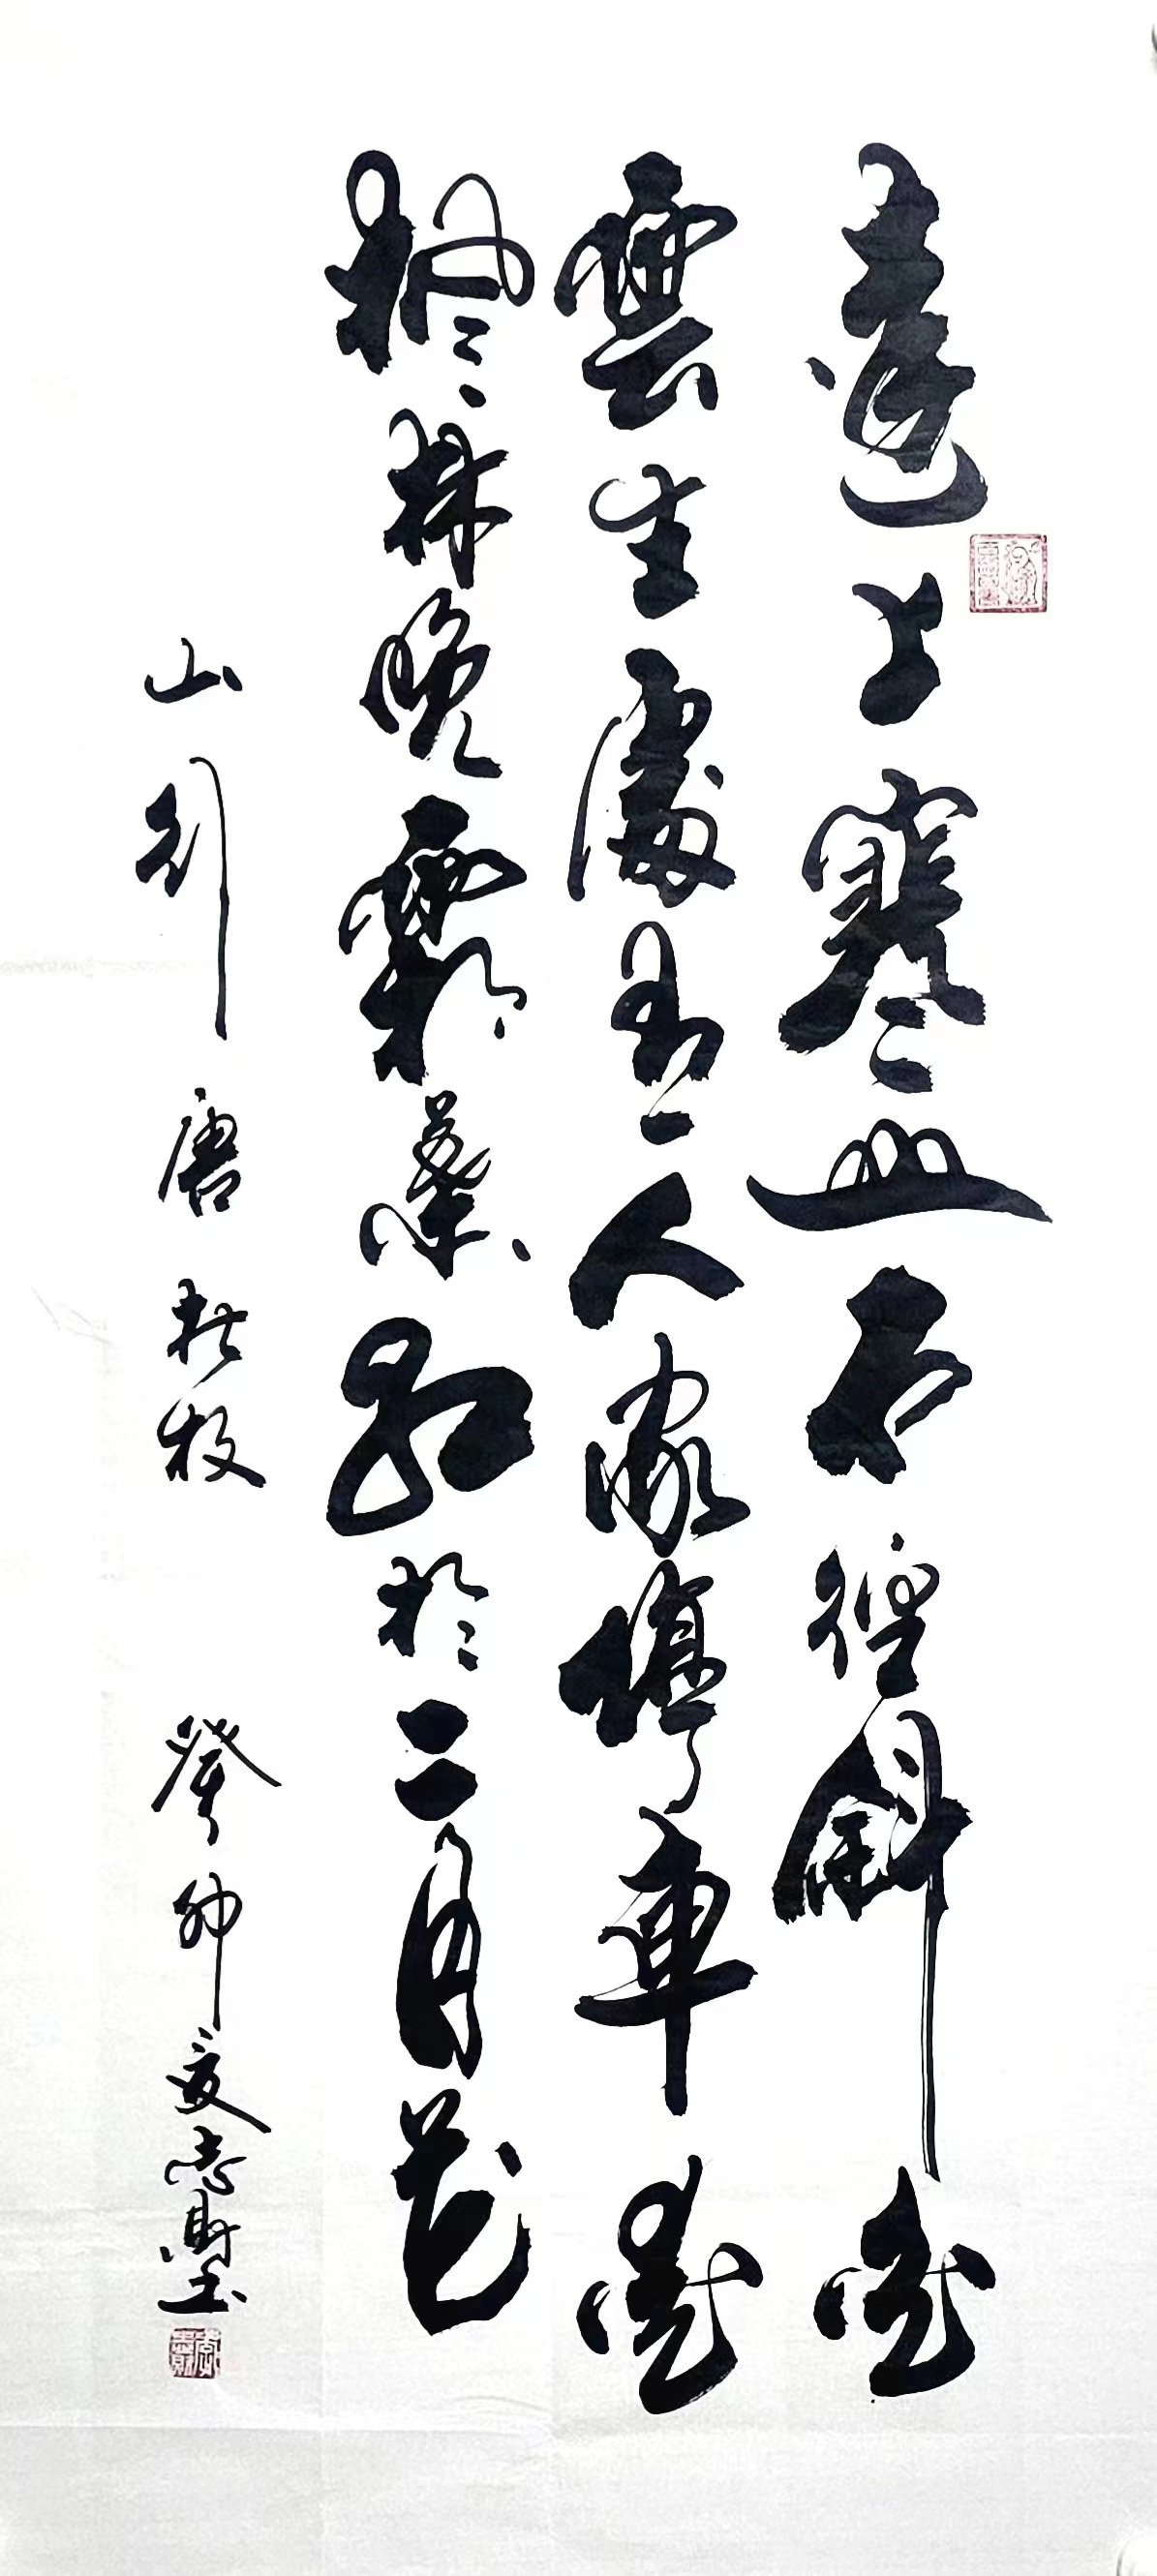 遠上寒山石徑斜
雲生處人家停車
楓林晚霜葉紅於二月花
山行 唐 杜牧 癸卯夏志